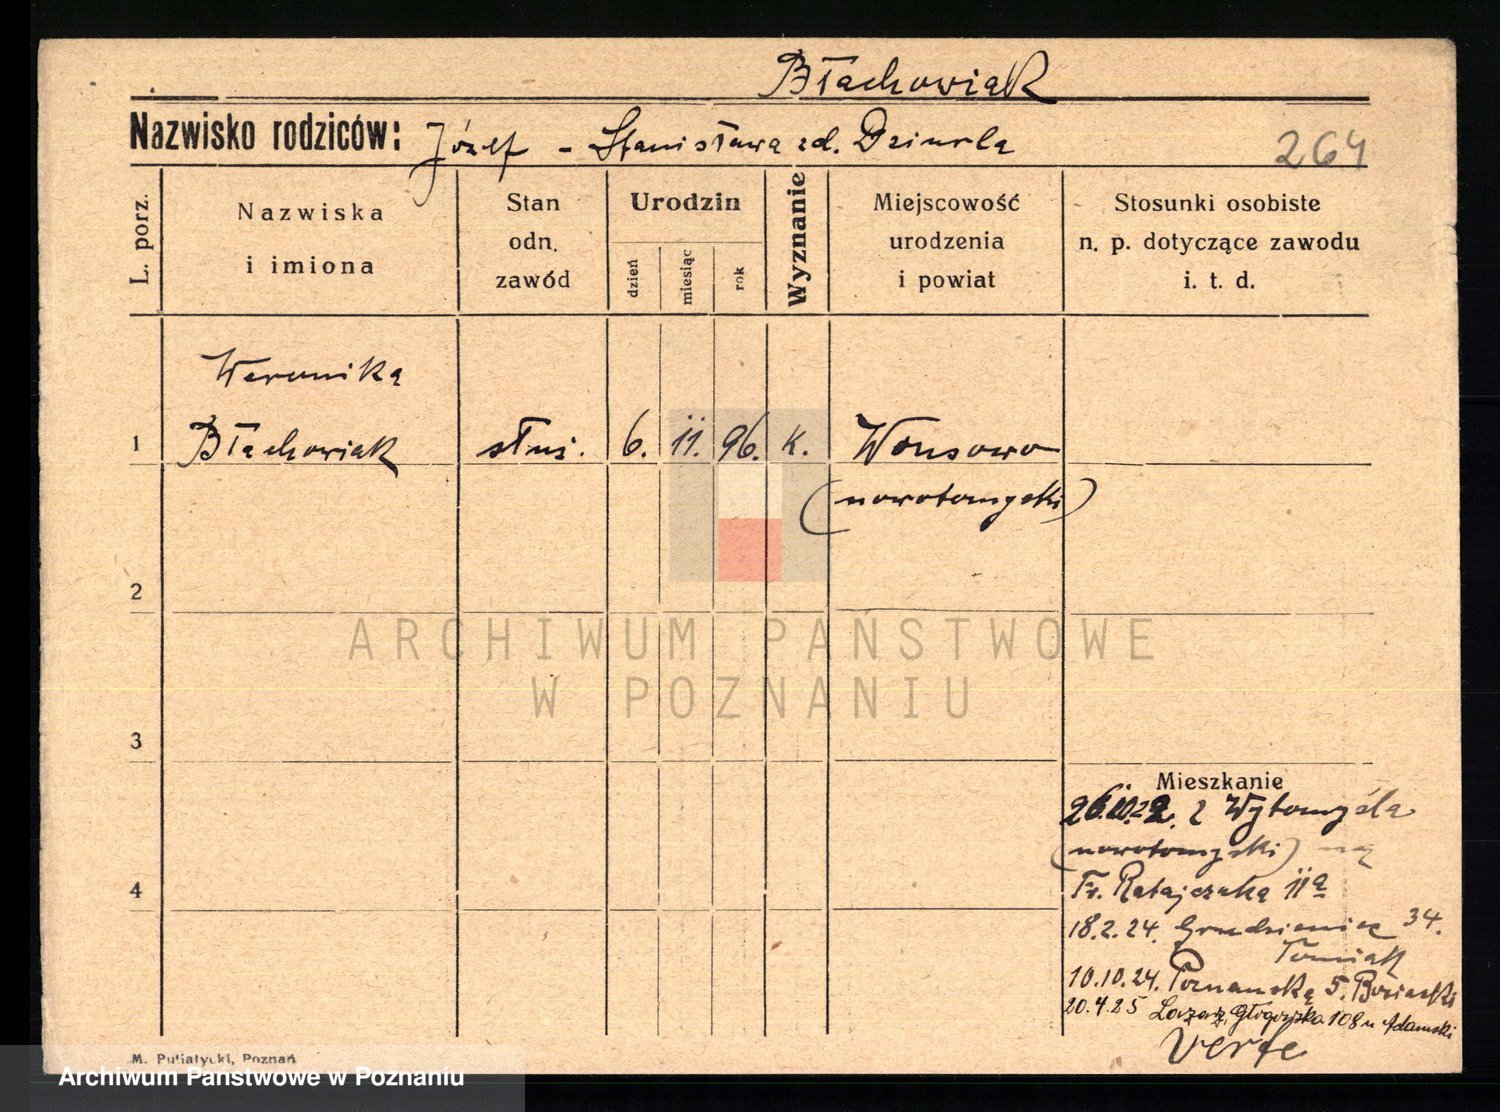 Błachowiak
Nazwisko rodziców: Józef - Stanisława zd. Dziurla
264
L. porz.
Nazwiska
i imiona
Stan
odn.
zawód
Urodzin
dzień
miesiąc
rok
Wyznanie
Miejscowość
urodzenia
i powiat
Stosunki osobiste
n. p. dotyczące zawodu
i. t. d.
Weronika
1 Błachowiak służ. 6. 11. 96. k. Wonsowo
(nowotomyski)
2
ARCHIWUM PAŃSTWOWE
W POZNANIU
3
Mieszkanie
z Wytomyśla
(nowotomyski) na
4
Fr. Ratajczaka 11a
18.2.24. Grudzieniec 34.
Tomiak
10.10.24. Poznańska 5.
20.4.25 Łazarz, Głogowska 108 u Adamski
verte
M. Putiatycki, Poznań
Archiwum Państwowe w Poznaniu